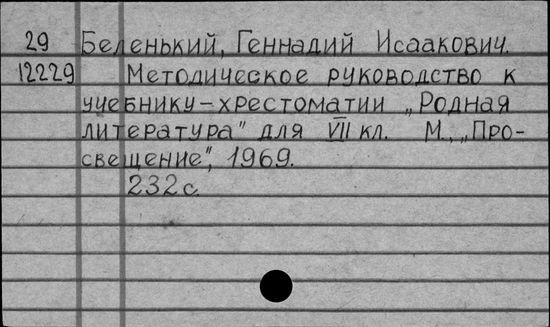 29 Беленький, Геннадий Исаакович.
12229 Методическое руководство к
учебнику-хрестоматии „Родная
литература" для VII кл. М., „Про-
свещение", 1969.
232 с.